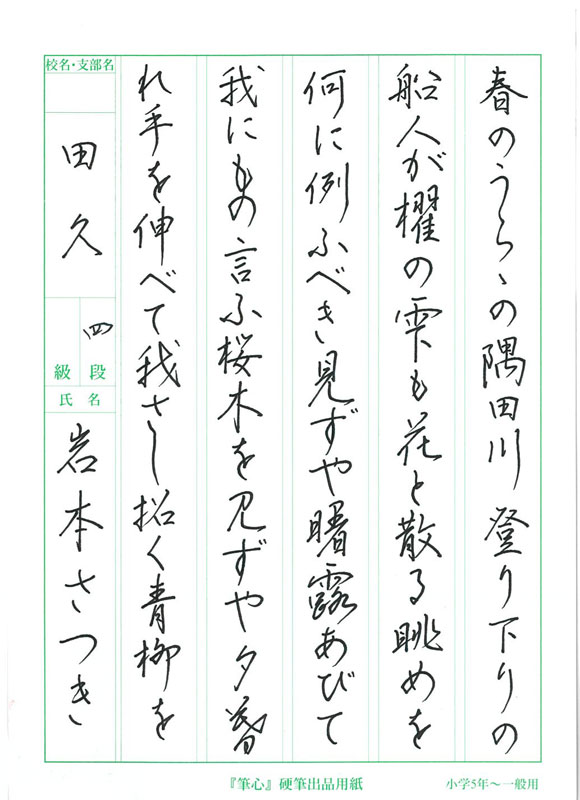 春のうらゝの隅田川登り下りの
船人が櫂の雫も花と散る眺めを
何に例ふべき見ずや曙露あびて
我にもの言ふ桜木を見ずや夕暮
れ手を伸べて我さし招く青柳を
校名・支部名
田久
四
段
級
氏名
岩本さつき
『筆心』硬筆出品用紙
小学5年〜一般用